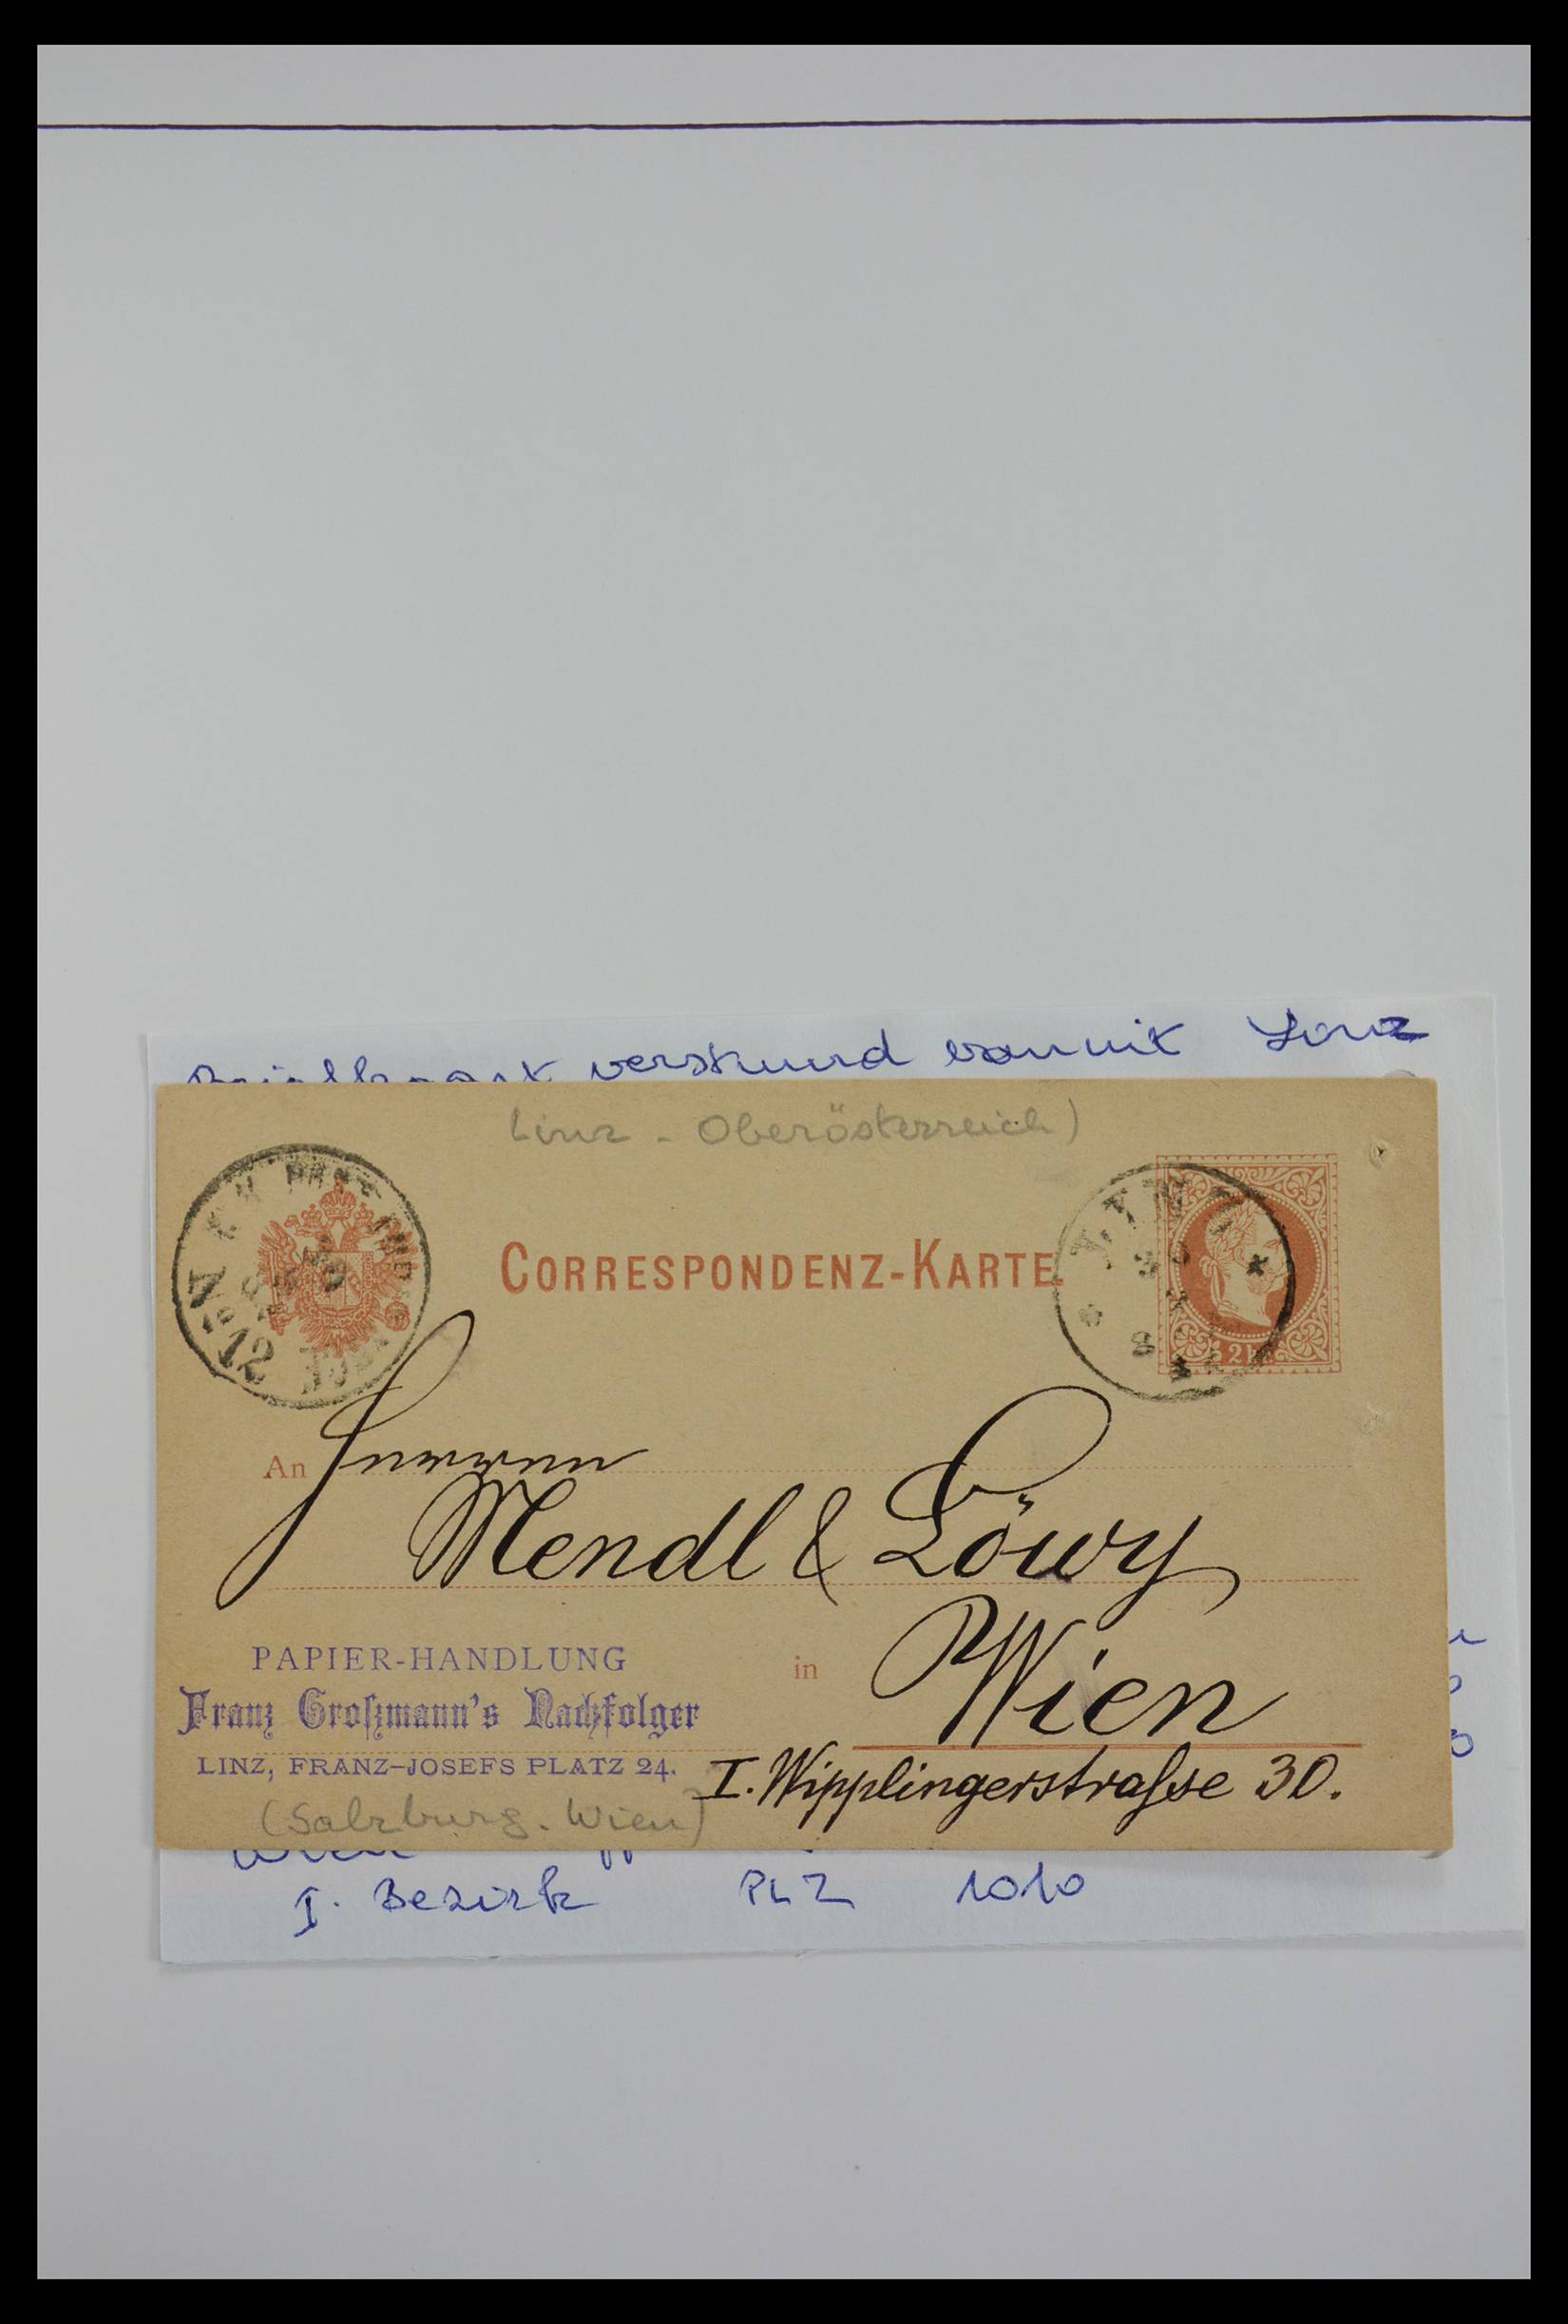 verstuurd vanuit Linz
Linz - Oberösterreich)
LINZ
CORRESPONDENZ-KARTE.
Nº 12
2 Kr.
An Herren
Mendl & Löwy
PAPIER-HANDLUNG
in Wien
Franz Großmann's Nachfolger
LINZ, FRANZ-JOSEFS PLATZ 24.
I. Wipplingerstraſse 30.
(Salzburg - Wien)
I. Bezirk PLZ 1010